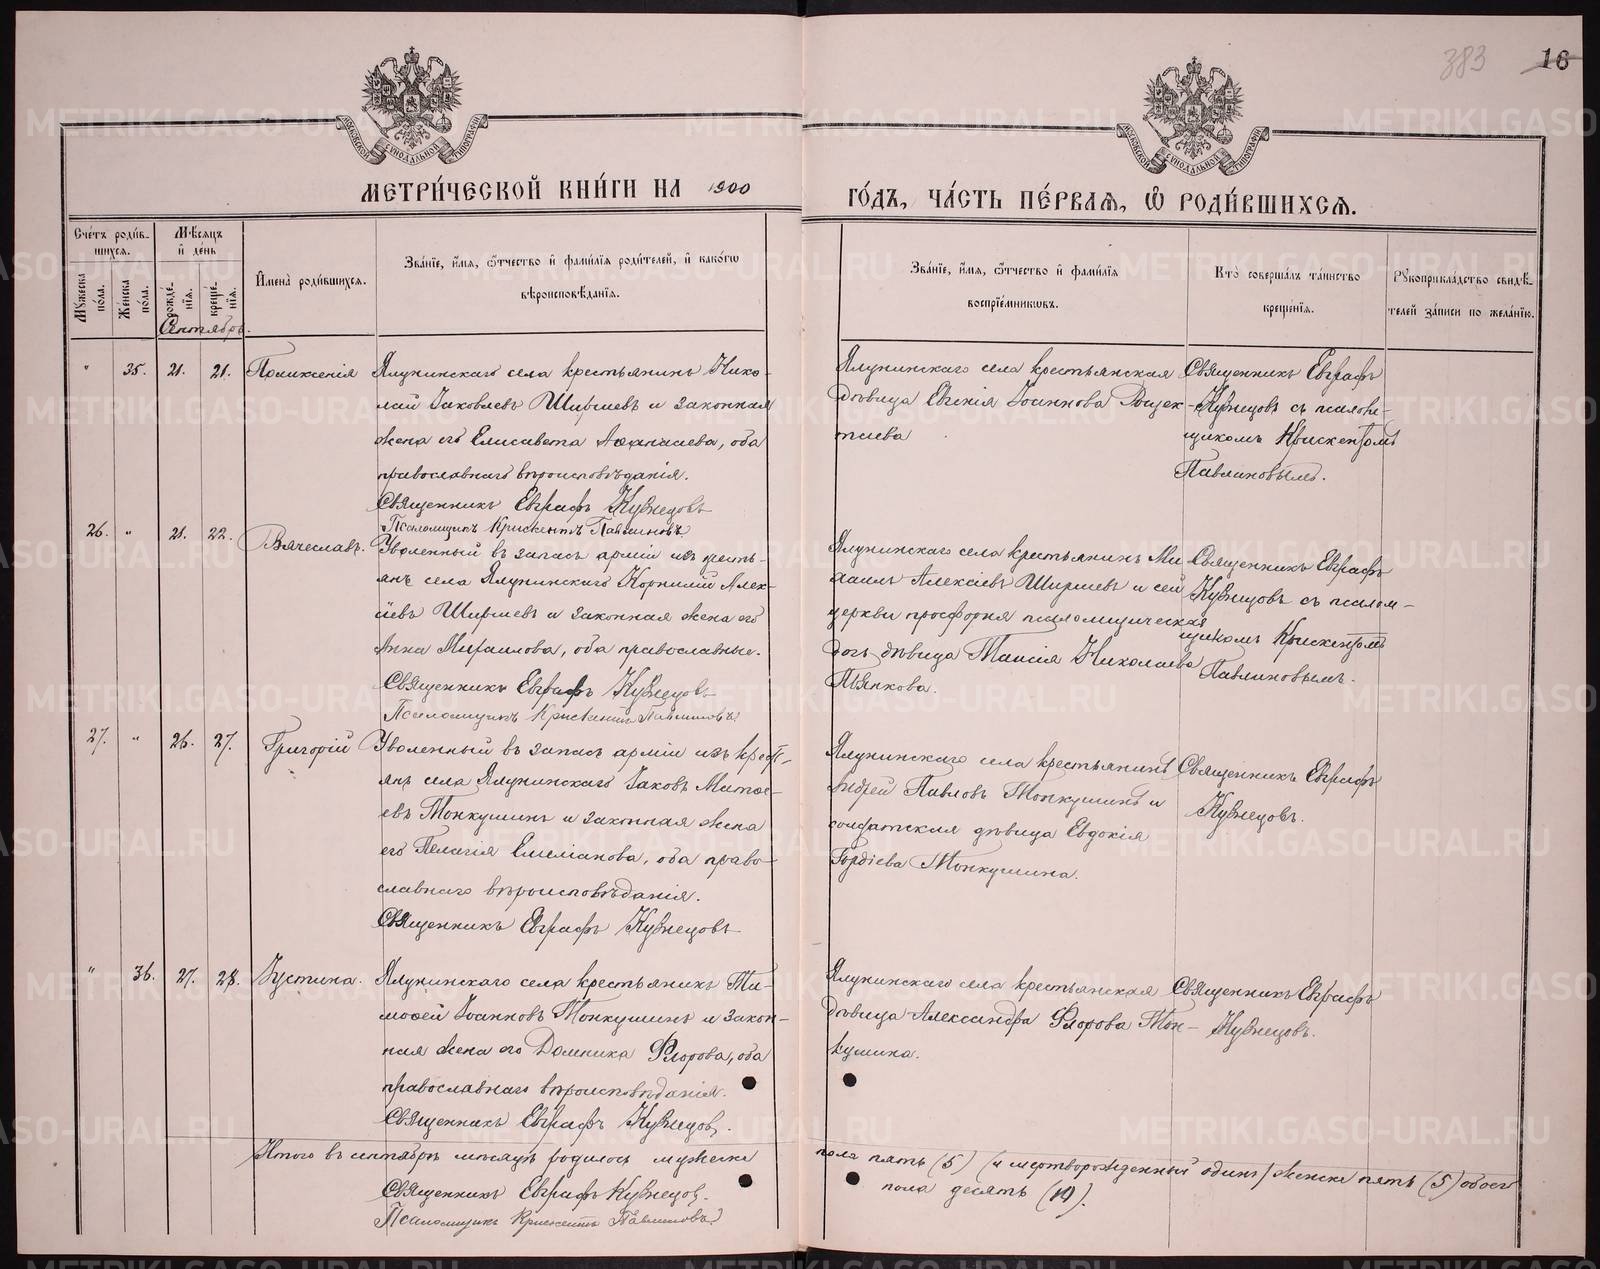 383
16
МЕТРИ́ЧЕСКОЙ КНИ́ГИ НА 1900
ГО́ДЪ, ЧА́СТЬ ПЕ́РВАѦ, Ѽ РОДИ́ВШИХСѦ.
Сче́тъ роди́в-
шихся.
Мѣ́сяцъ
и́ де́нь
Му́жеска
по́ла.
Же́нска
по́ла.
рожде́-
нїя.
креще́-
нїя.
И́мена̀ роди́вшихся.
Зва́нїе, и́мя, ѻ҆́тчество и́ фами́лїя роди́телей, и́ како́гѡ
вѣроисповѣ́данїя.
Зва́нїе, и́мя, ѻ҆́тчество и́ фами́лїя
воспрїе́мникѡвъ.
Кто̀ соверша́лъ та́инство
креще́нїя.
Рꙋкоприкла́дство свидѣ́-
телей за́писи по жела́нїю.
Сентябрь.
" 35. 21. 21.
Поликсенія
Ялунинскаго села крестьянинъ Нико-
лай Іаковлевъ Ширшевъ и законная
жена его Елисавета Аѳанасіева, оба
православнаго вѣроисповѣданія.
Священникъ Евграфъ Кузнецовъ
Псаломщикъ Крискентъ Павлиновъ
Ялунинскаго села крестьянская
дѣвица Евгенія Іоаннова
Священникъ Евграфъ
Кузнецовъ съ псалом-
щикомъ Крискентомъ
Павлиновымъ.
26. " 21. 22.
Вячеславъ.
Уволенный въ запасъ арміи изъ кресть-
янъ села Ялунинскаго Корнилій Алек-
сіевъ Ширшевъ и законная жена его
Анна Михаилова, оба православные.
Священникъ Евграфъ Кузнецовъ
Псаломщикъ Крискентъ Павлиновъ
Ялунинскаго села крестьянинъ Ми
хаилъ Алексіевъ Ширшевъ и сей
церкви просфорня псаломщическая
дочь дѣвица Таисія Николаева
Пьянкова.
Священникъ Евграфъ
Кузнецовъ съ псалом-
щикомъ Крискентомъ
Павлиновымъ.
27. " 26. 27.
Григорій
Уволенный въ запасъ арміи изъ крест-
янъ села Ялунинскаго Іаковъ Матѳе-
евъ Монкушинъ и законная жена
его Пелагія Емеліанова, оба право-
славнаго вѣроисповѣданія.
Священникъ Евграфъ Кузнецовъ
Ялунинскаго села крестьянинъ
Андрей Павловъ Монкушинъ и
солдатская дѣвица Евдокія
Гордіева Монкушина.
Священникъ Евграфъ
Кузнецовъ.
" 36. 27. 28.
Іустина.
Ялунинскаго села крестьянинъ Ти-
моѳей Іоанновъ Монкушинъ и закон-
ная жена его Домника Флорова, оба
православнаго вѣроисповѣданія.
Священникъ Евграфъ Кузнецовъ.
Ялунинскаго села крестьянская
дѣвица Александра Флорова Мон-
кушина.
Священникъ Евграфъ
Кузнецовъ.
Итого въ сентябрѣ мѣсяцѣ родилось мужеска
пола пять (5) (и мертворожденный одинъ) женска пять (5) обоего
пола десять (10).
Священникъ Евграфъ Кузнецовъ.
Псаломщикъ Крискентъ Павлиновъ